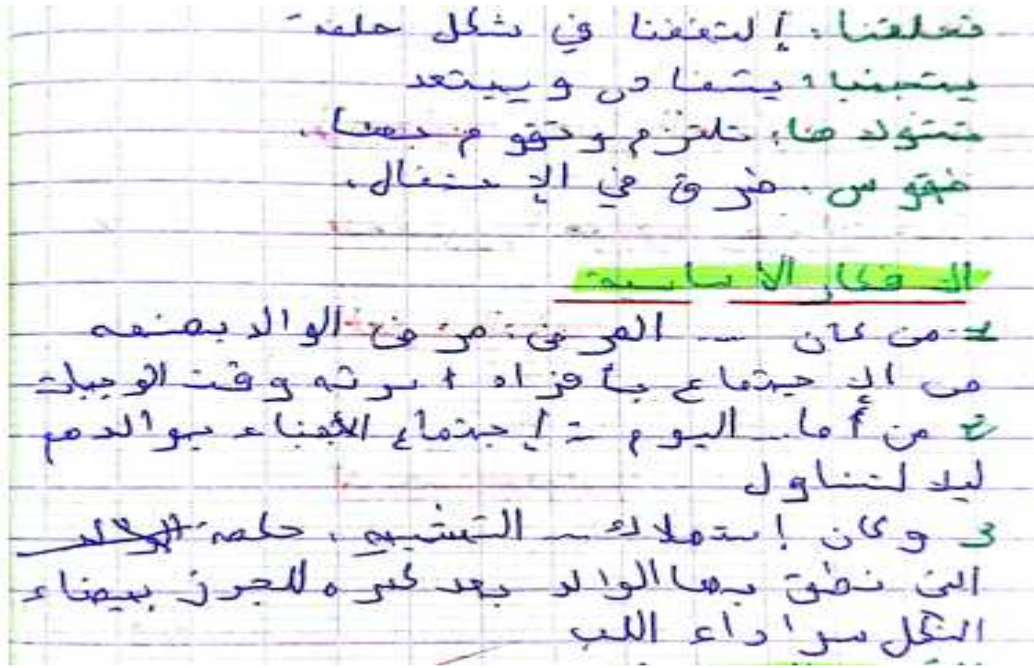 فتحلقنا: إلتففنا في شكل حلقة
يتجنبها: يتفادى ويبتعد
تتولاها: تلتزم وتقوم بها.
طقوس: طرق في الإحتفال.
الأفكار الأساسية
1 من كان ... المرض: مرض الوالد يمنعه
من الإجتماع بأفراد أسرته وقت الوجبات
2 من أما ... اليوم = إجتماع الأبناء بوالدهم
ليلا لتناول
3 وكان إستهلاك ... التشبيه.
التي نطق بها الوالد بعد كسره للجوز بيضاء
الشكل سوداء اللب